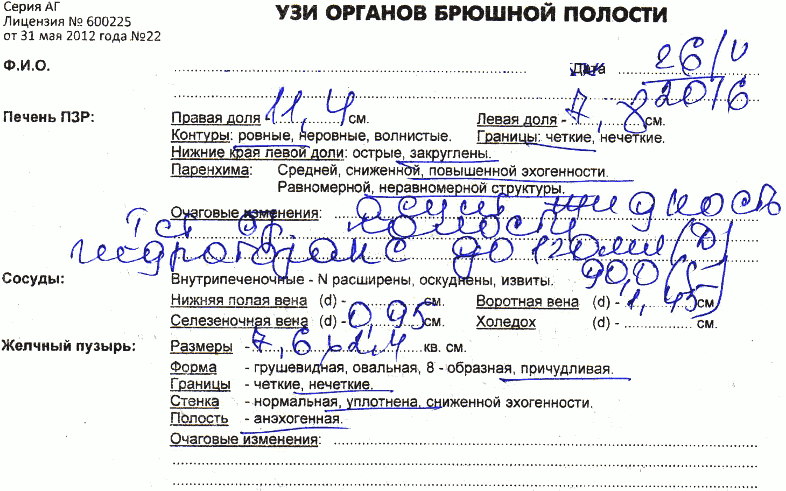 Серия АГ
Лицензия № 600225
от 31 мая 2012 года №22
УЗИ ОРГАНОВ БРЮШНОЙ ПОЛОСТИ
Ф.И.О. Дата 26/V
2016
Печень ПЗР: Правая доля - 11,4 см. Левая доля - 7,8 см.
Контуры: ровные, неровные, волнистые. Границы: четкие, нечеткие.
Нижние края левой доли: острые, закруглены.
Паренхима: Средней, сниженной, повышенной эхогенности.
Равномерной, неравномерной структуры.
Очаговые изменения: асцит жидкость
полости
гидроторакс до 120мл (D)
90,0 (S)
Сосуды: Внутрипеченочные - N расширены, оскуднены, извиты.
Нижняя полая вена (d) - см. Воротная вена (d) - 1,45 см
Селезеночная вена (d) - 0,95 см. Холедох (d) - см.
Желчный пузырь: Размеры - 7,6 х 2.4 кв. см.
Форма - грушевидная, овальная, 8 - образная, причудливая.
Границы - четкие, нечеткие.
Стенка - нормальная, уплотнена, сниженной эхогенности.
Полость - анэхогенная.
Очаговые изменения: